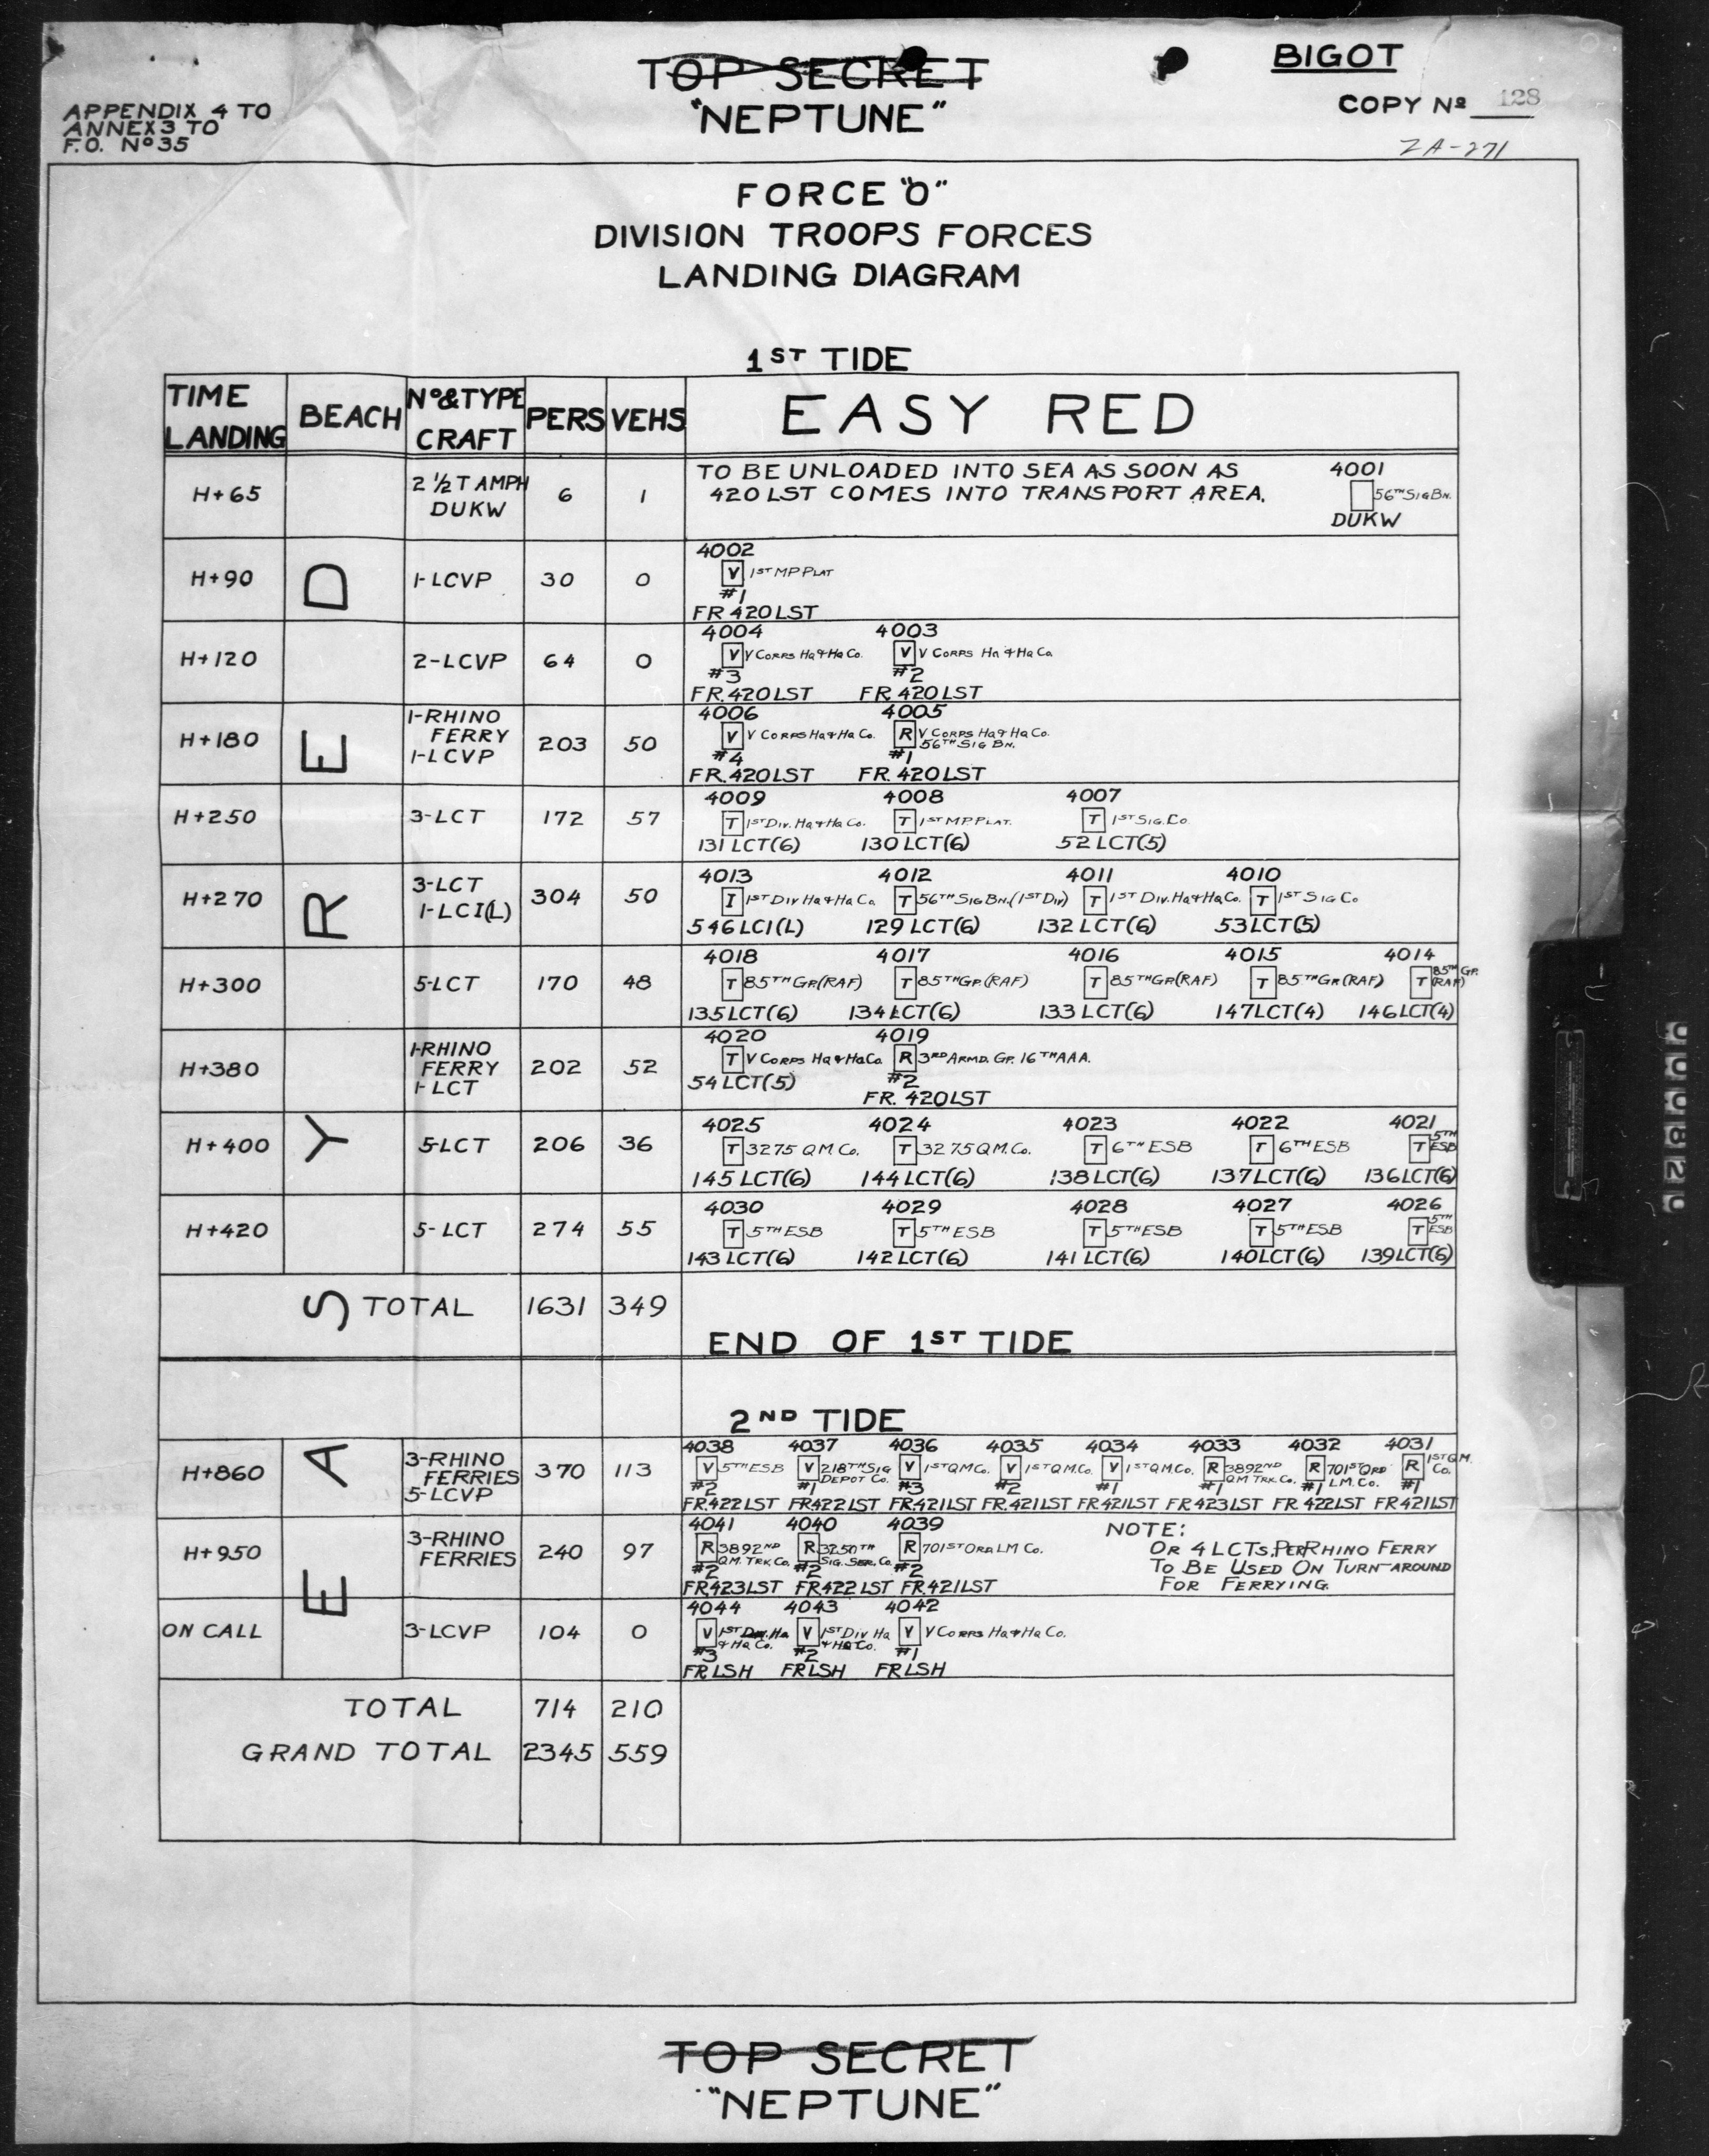 TOP SECRET
"NEPTUNE"
BIGOT
COPY Nº 128
ZA-271
APPENDIX 4 TO
ANNEX 3 TO
F.O. Nº 35
FORCE "O"
DIVISION TROOPS FORCES
LANDING DIAGRAM
1ST TIDE
TIME LANDING BEACH Nº & TYPE CRAFT PERS VEHS EASY RED
EASY RED
H+65 2 ½ T AMPH DUKW 6 1
TO BE UNLOADED INTO SEA AS SOON AS
420 LST COMES INTO TRANSPORT AREA.
4001
56TH SIG BN.
DUKW
H+90 1-LCVP 30 0
4002
V 1ST MP PLAT
#1
FR 420 LST
H+120 2-LCVP 64 0
4004 4003
V V CORPS Hq & Hq Co. V V CORPS Hq & Hq Co.
#3 #2
FR. 420 LST FR. 420 LST
H+180 1-RHINO FERRY 1-LCVP 203 50
4006 4005
V V CORPS Hq & Hq Co. R V CORPS Hq & Hq Co.
56TH SIG BN.
#4 #1
FR. 420 LST FR. 420 LST
H+250 3-LCT 172 57
4009 4008 4007
T 1ST Div. Hq & Hq Co. T 1ST MP PLAT. T 1ST SIG. Co.
131 LCT(6) 130 LCT(6) 52 LCT(5)
H+270 3-LCT 1-LCI(L) 304 50
4013 4012 4011 4010
I 1ST Div Hq & Hq Co. T 56TH SIG BN. (1ST Div) T 1ST Div. Hq & Hq Co. T 1ST SIG Co
546 LCI(L) 129 LCT(6) 132 LCT(6) 53 LCT(5)
H+300 5-LCT 170 48
4018 4017 4016 4015 4014
T 85TH GP. (RAF) T 85TH GP. (RAF) T 85TH GP (RAF) T 85TH GP (RAF) T 85TH GP. (RAF)
135 LCT(6) 134 LCT(6) 133 LCT(6) 147 LCT(4) 146 LCT(4)
H+380 1-RHINO FERRY 1-LCT 202 52
4020 4019
T V CORPS Hq & Hq Co R 3RD ARMD. GP. 16TH AAA.
54 LCT(5) #2
FR. 420 LST
H+400 5-LCT 206 36
4025 4024 4023 4022 4021
T 3275 Q M. Co. T 3275 Q M. Co. T 6TH ESB T 6TH ESB T 5TH ESB
145 LCT(6) 144 LCT(6) 138 LCT(6) 137 LCT(6) 136 LCT(6)
H+420 5-LCT 274 55
4030 4029 4028 4027 4026
T 5TH ESB T 5TH ESB T 5TH ESB T 5TH ESB T 5TH ESB
143 LCT(6) 142 LCT(6) 141 LCT(6) 140 LCT(6) 139 LCT(6)
TOTAL 1631 349
END OF 1ST TIDE
2ND TIDE
H+860 3-RHINO FERRIES 5-LCVP 370 113
4038 4037 4036 4035 4034 4033 4032 4031
V 5TH ESB V 218TH SIG DEPOT Co. V 1ST QM Co. V 1ST Q M. Co. V 1ST Q M. Co. R 3892ND QM TRK. Co. R 701ST ORD L M. Co. R 1ST Q M. Co.
#2 #1 #3 #2 #1 #1 #1 #1
FR 422 LST FR 422 LST FR 421 LST FR. 421 LST FR 421 LST FR 423 LST FR 422 LST FR 421 LST
H+950 3-RHINO FERRIES 240 97
4041 4040 4039
R 3892ND QM. TRK. Co. R 3250TH SIG. SER. Co. R 701ST ORD. LM Co.
#2 #2 #2
FR 423 LST FR 422 LST FR 421 LST
NOTE:
OR 4 LCTs, PER RHINO FERRY
TO BE USED ON TURN-AROUND
FOR FERRYING.
ON CALL 3-LCVP 104 0
4044 4043 4042
V 1ST Div. Hq & Hq Co. V 1ST Div Hq & Hq Co. V V CORPS Hq & Hq Co.
#3 #2 #1
FR LSH FR LSH FR LSH
TOTAL 714 210
GRAND TOTAL 2345 559
TOP SECRET
"NEPTUNE"